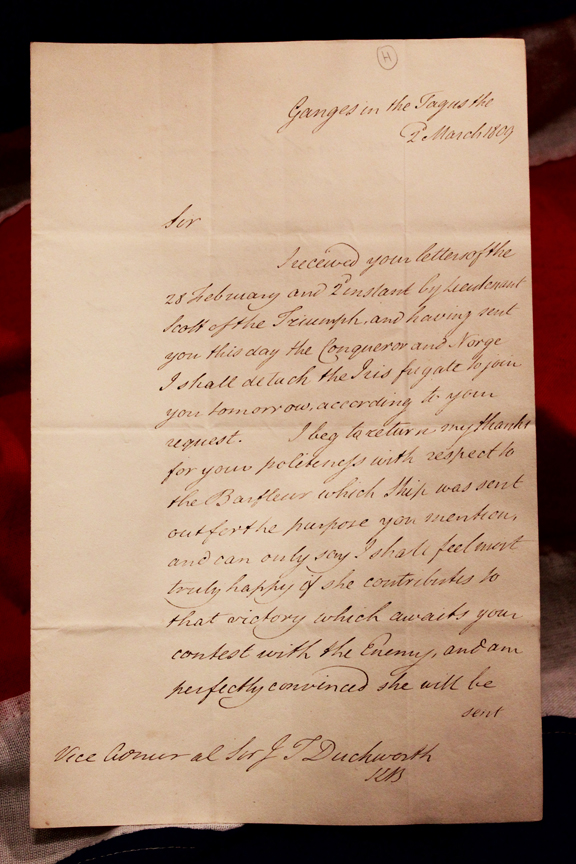 H
Ganges in the Tagus the
2d March 1809
Sir
I received your letters of the
28 February and 2d instant by Lieutenant
Scott of the Triumph, and having sent
you this day the Conqueror and Norge
I shall detach the Iris frigate to join
you tomorrow, according to your
request. I beg to return my thanks
for your politeness with respect to
the Barfleur which Ship was sent
out for the purpose you mention,
and can only say I shall feel most
truly happy if she contributes to
that victory which awaits your
contest with the Enemy, and am
perfectly convinced she will be
sent
Vice Admiral Sir J T Duckworth
KB